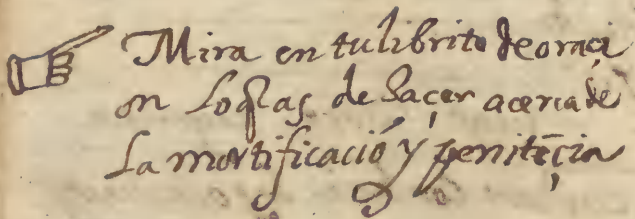 ☞ Mira en tu librito de oraçi
on lo q̃ as de haçer acerca de
la mortificaçiõ y penitẽçia